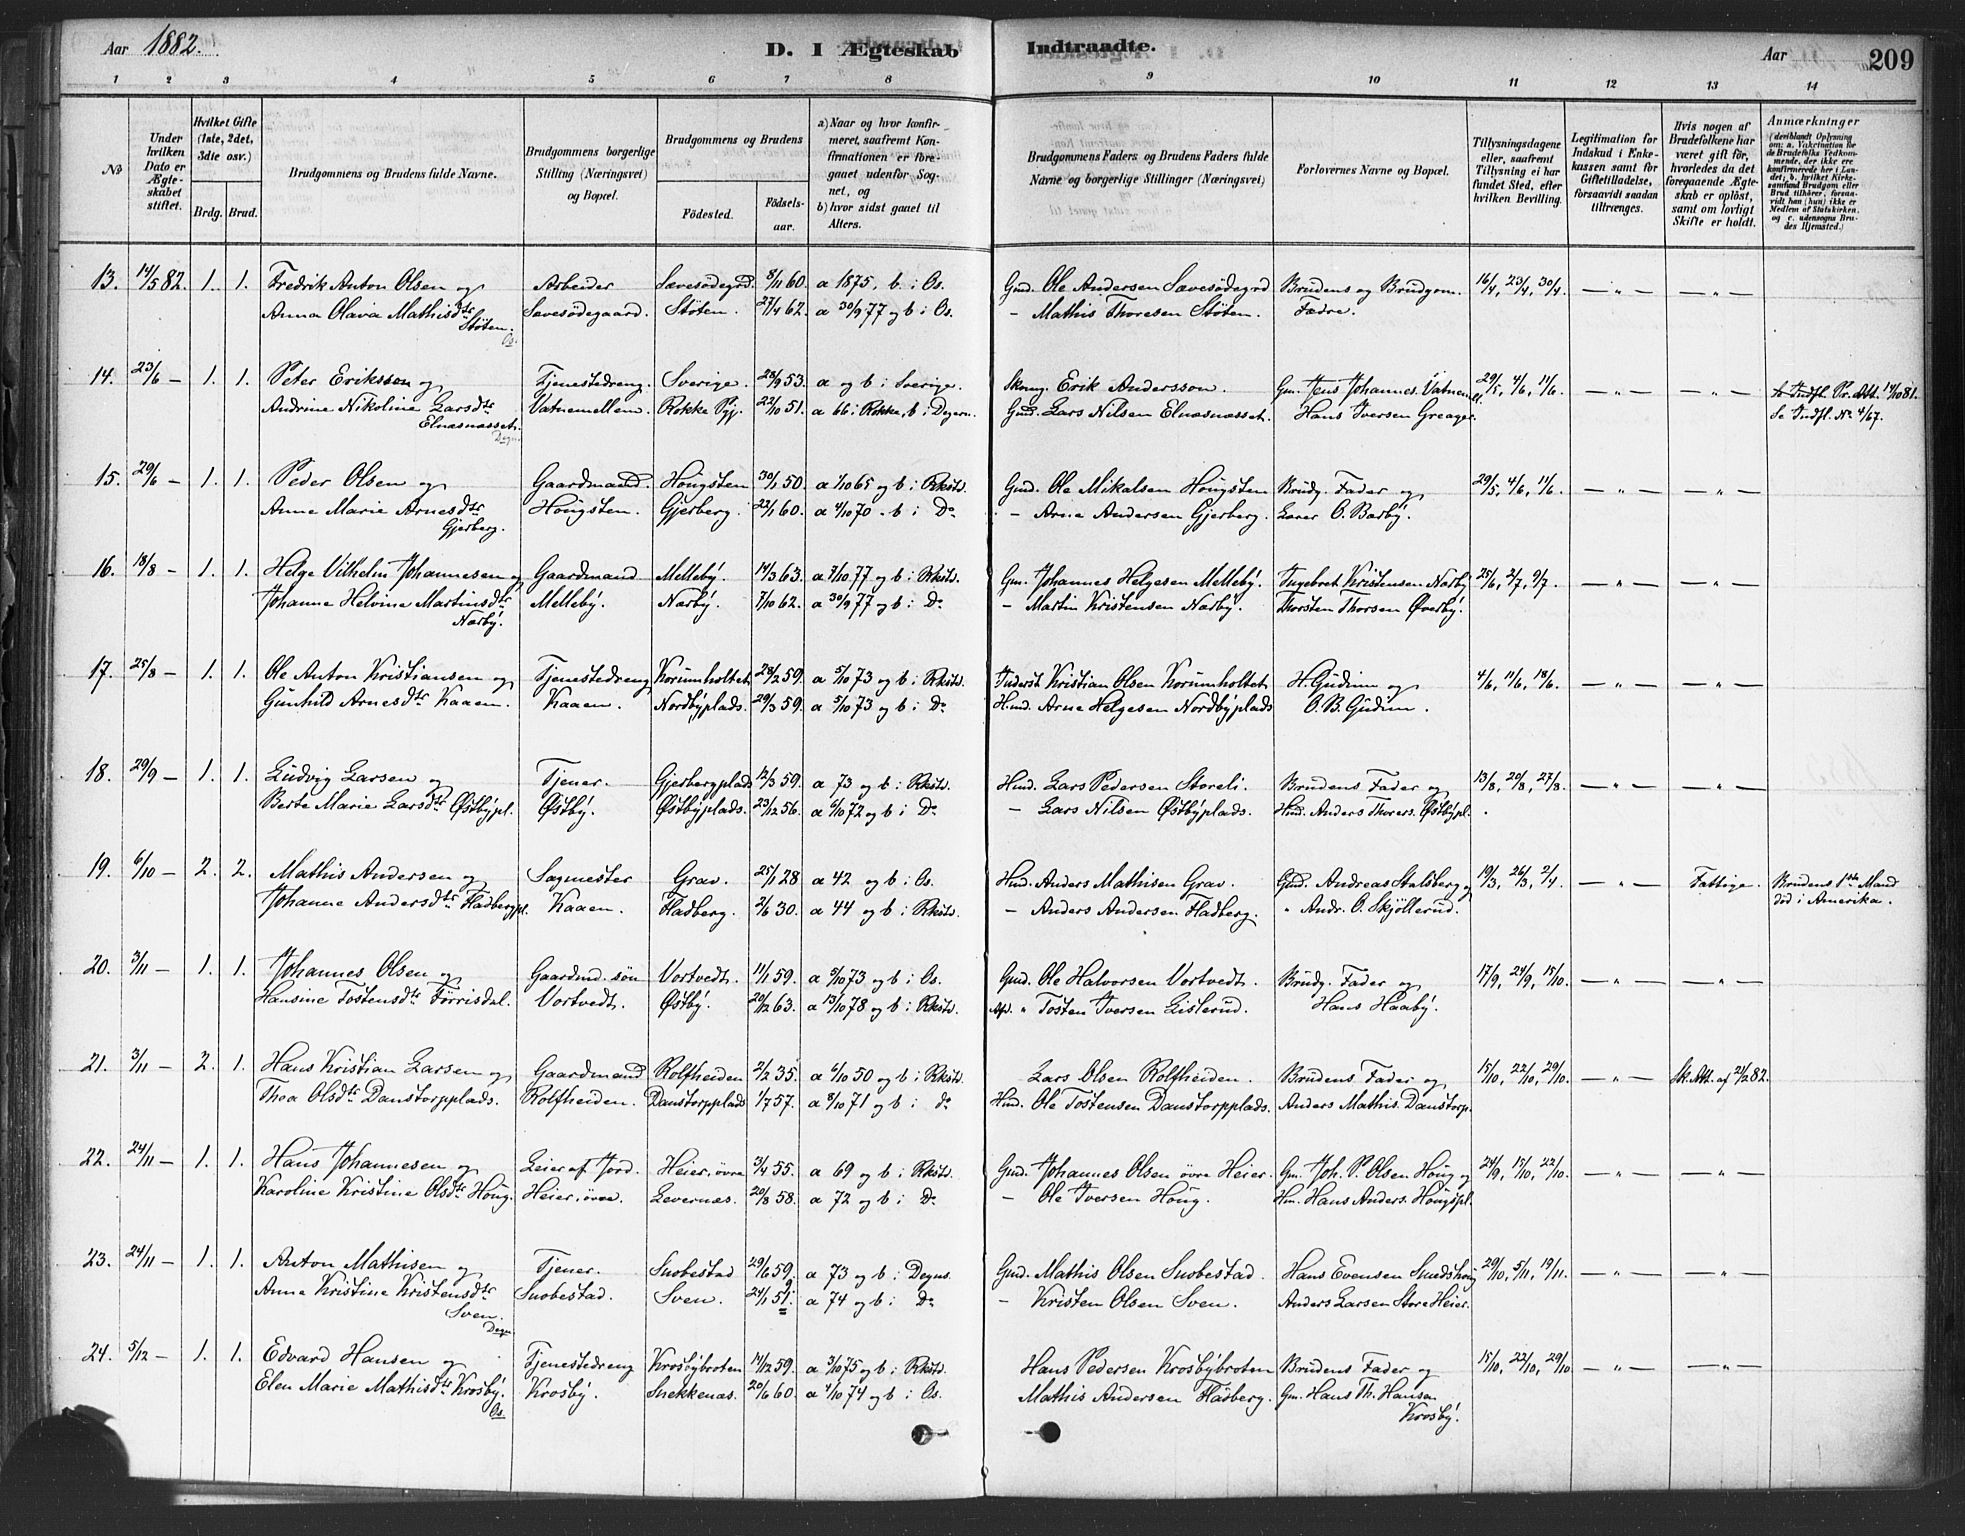 Aar 1882. D. I Ægteskab Indtraadte. Aar 209
1 2 3 4 5 6 7 8 9 10 11 12 13 14
No
Under hvilken Dato er Ægteskabet stiftet.
Hvilket Gifte (1ste, 2det, 3die osv.)
Brdg. Brud.
Brudgommens og Brudens fulde Navne.
Brudgommens borgerlige Stilling (Næringsvei) og Bopæl.
Brudgommens og Brudens
Fødested. Fødselsaar.
a) Naar og hvor konfirmeret, saafremt Konfirmationen er foregaaet udenfor Sognet, og
b) hvor sidst gaaet til Alters.
Brudgommens Faders og Brudens Faders fulde Navne og borgerlige Stillinger (Næringsvei)
Forlovernes Navne og Bopæl.
Tillysningsdagene eller, saafremt Tillysning ei har fundet Sted, efter hvilken Bevilling.
Legitimation for Indskud i Enkekassen samt for Giftetilladelse, forsaavidt saadan tiltrænges.
Hvis nogen af Brudefolkene har været gift før, hvorledes da det foregaaende Ægteskab er opløst, samt om lovligt Skifte er holdt.
Anmærkninger
(deriblandt Oplysning om: a. Vakcination for de Brudefolks Vedkommende, der ikke ere konfirmerede her i Landet; b. hvilket Kirkesamfund Brudgom eller Brud tilhører, forsaavidt han (hun) ikke er Medlem af Statskirken, og c. udensogns Brudes Hjemsted.)
13. 14/5 82. 1. 1. Fredrik Anton Olsen og Arbeider Sævesødegrd. 8/11 60. a 1875. b. i Os. Gmd. Ole Andersen Sævesødegrd Brudens og Brudgom. 16/4, 23/4, 30/4. — „ — — „ —
Anna Olava Mathisdtr Støten. Sævesødegaard. Støten. 27/4 62. a 30/9 77 og b i Os. - Mathis Thoresen Støten. Fædre.
Os.
14. 23/6 — 1. 1. Peter Eriksson og Tjenestedreng. Sverige. 28/9 53. a og b i Sverige. Erik Andersson. Gm. Jens Johannes. Vatnemell. 29/5, 4/6, 11/6. — „ — — „ — Pr. Att. 14/10 81.
Andrine Nikoline Larsdtr Elnæsnæsset. Vatnemellem. Rokke Pgj. 22/10 51. a 66 i Rokke, b i Degern. Gmd. Lars Nilsen Elnæsnæsset. Hans Iversen Greager. Se Indfl. No 4/67.
Degn.
15. 29/6 — 1. 1. Peder Olsen og Gaardmand. Hougsten 30/1 50. a 1/10 65 og b i Rkstd. Gmd. Ole Mikalsen Hougsten Brudg. Fader og 29/5, 4/6, 11/6. — „ — — „ —
Anne Marie Arnesdtr Gjerberg. Hougsten. Gjerberg. 22/1 60. a 4/10 70 - b i Do - Arne Andersen Gjerberg. Lærer O. Barby.
16. 18/8 — 1. 1. Helge Vilhelm Johannesen og Gaardmand Melleby. 14/3 63. a 7/10 77 og b i Rkstd. Gm. Johannes Helgesen Melleby. Ingebret Kristensen Narby 25/6, 2/7, 9/7. — „ — — „ —
Johanne Helvine Martinsdtr Narby. Melleby. Narby. 7/10 62. a 30/9 77 og b i Do - Martin Kristensen Narby. Thorsten Thorsen Øverby.
17. 25/8 — 1. 1. Ole Anton Kristiansen og Tjenestedreng Korumholtet 28/2 59. a 5/10 73 og b i Rkstd. Inderst. Kristian Olsen Korumholtet H. Gudim og 4/6, 11/6, 18/6. — „ — — „ —
Gunhild Arnesdtr Kaaen. Kaaen. Nordbyplads. 29/3 59. a 5/10 73 og b i Do Hmd. Arne Helgesen Nordbyplads O. B. Gudim.
18. 29/9 — 1. 1. Ludvig Larsen og Tjener. Gjerbergplads 12/3 59. a 73 og b i Rkstd. Hmd. Lars Pedersen Storeli. Brudens Fader og 13/8, 20/8, 27/8. — „ — — „ —
Berte Marie Larsdtr Østbypl. Østby. Østbyplads. 23/12 56. a 6/10 72 og b i Do - Lars Nilsen Østbyplads. Hmd. Anders Thorers. Østbypl.
19. 6/10 — 2. 2. Mathis Andersen og Sagmester Grav. 25/1 28 a 42 og b i Os. Hmd. Anders Mathisen Grav. Gmd. Andreas Stalsberg og 19/3, 26/3, 2/4. — „ — Fattige. Brudens 1ste Mand
Johanne Andersdtr Fladbergpl. Kaaen. Fladberg. 2/6 30. a 44 og b i Rkstd. - Anders Andersen Fladberg. „ Andr. O. Skjøllerud. død i Amerika.
20. 3/11 — 1. 1. Johannes Olsen og Gaardmd. søn Vortvedt. 11/1 59. a 5/10 73 og b i Os. Gmd. Ole Halvorsen Vortvedt. Brudg. Fader og 17/9, 24/9, 15/10. — „ — — „ —
Hansine Tostensdtr Førrisdal. Vortvedt. Østby. 20/12 63. a 13/10 78 og b i Rkstd. Afd. „ Tosten Iversen Lislerud. Hans Haaby.
21. 3/11 — 2. 1. Hans Kristian Larsen og Gaardmand Rolfheiden 2/2 35. a 6/10 50 og b i Rkstd. Lars Olsen Rolfheiden. Brudens Fader og 15/10, 22/10, 29/10. — „ — Sk. Att. af 21/2 82.
Thea Olsdtr Danstorpplads. Rolfheiden. Danstorpplads 1/7 57. a 8/10 71 og b i do Hmd. Ole Tostensen Danstorpplads. Anders Mathis. Danstorp.
22. 24/11 — 1. 1. Hans Johannesen og Leier af Jord. Heier, øvre 3/4 55. a 69 og b i Rkstd. Gmd. Johannes Olsen øvre Heier. Gm. Joh. P. Olsen Houg og 24/9, 15/10, 22/10. — „ — — „ —
Karoline Kristine Olsdtr Houg. Heier, øvre. Levernæs. 20/8 58. a 72 og b i Do - Ole Iversen Houg. Hm. Hans Anders. Hougspl.
23. 24/11 — 1. 1. Anton Mathisen og Tjener. Snobestad 29/6 59. a 73 og b i Degns. Gmd. Mathis Olsen Snobestad. Hans Evensen Smedshoug 29/10, 5/11, 19/11. — „ — — „ —
Anne Kristine Kristensdtr Sven. Snobestad. Sven. 24/1 51. a 74 og b i Do - Kristen Olsen Sven. Anders Larsen Store Heier.
Degn.
24. 5/12 — 1. 1. Edvard Hansen og Tjenestedreng Krosbybroten 14/12 59. a 3/10 75 og b i Rkstd. Hans Pedersen Krosbybroten Brudens Fader og 15/10, 22/10, 29/10 — „ — — „ —
Elen Marie Mathisdtr Krosby. Krosby. Snekkenæs. 20/6 60. a 4/10 74 og b i Os. Mathis Andersen Fladberg. Gm. Hans Th. Hansen Krosby.
Os.